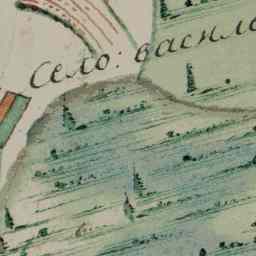 Село: васил